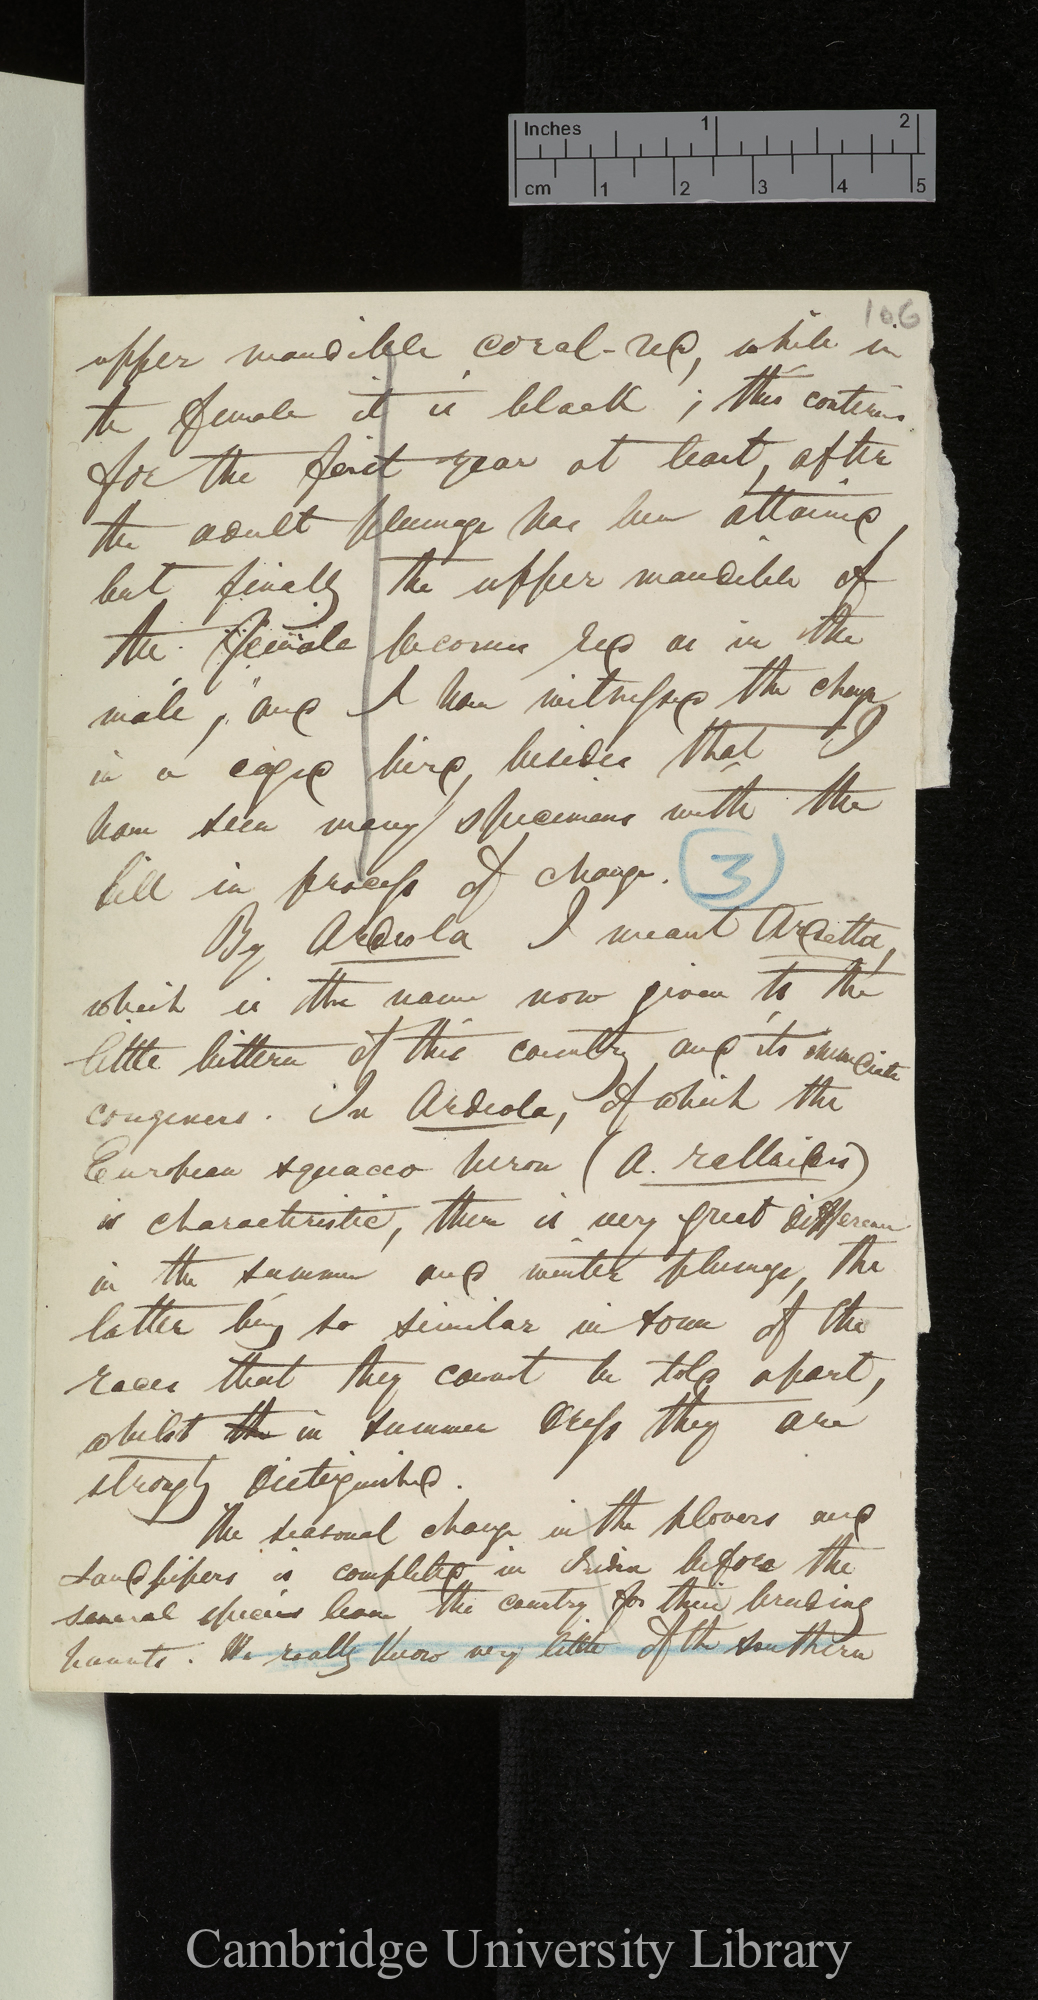 Inches 1 2
cm 1 2 3 4 5
106
upper mandible coral-red, while in
the female it is black; this continues
for the first year at least, after
the adult plumage has been attained,
but finally the upper mandible of
the female becomes red as in the
male; and I have witnessed the change
in a caged bird, besides that I
have seen many specimens with the
bill in process of change.
3
By Ardeola I meant Ardetta,
which is the name now given to the
little bittern of this country and its immediate
congeners. In Ardeola, of which the
European squacco heron (A. ralloides)
is characteristic, there is very great difference
in the summer and winter plumage, the
latter being so similar in some of the
races that they cannot be told apart,
whilst the in summer dress they are
strongly distinguished.
The seasonal change in the plovers and
sandpipers is completed in India before the
several species leave the country for their breeding
haunts. We really know very little of the southern
Cambridge University Library